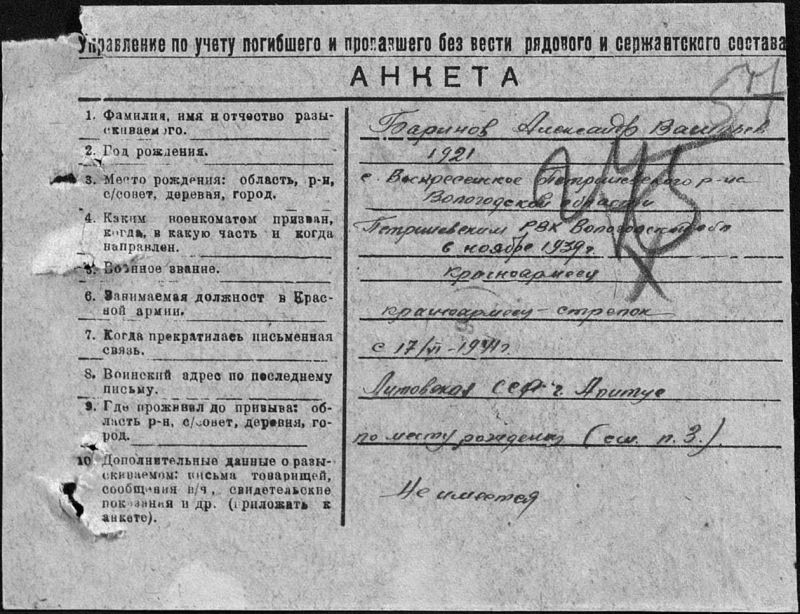 Управление по учету погибшего и пропавшего без вести рядового и сержантского состава
АНКЕТА
1. Фамилия, имя и отчество разы-
скиваемого.
Баринов Александр Васильев
2. Год рождения.
1921
3. Место рождения: область, р-н,
с/совет, деревня, город.
с. Воскресенское Петриневского р-на
Вологодской области
4. Каким военкоматом призван,
когда, в какую часть и когда
направлен.
Петриневским РВК Вологодской обл
в ноябре 1939 г.
5. Военное звание.
красноармеец
6. Занимаемая должност в Крас-
ной армии.
красноармеец-стрелок
7. Когда прекратилась письменная
связь.
с 17/VI-1941г.
8. Воинский адрес по последнему
письму.
Литовская ССР г. Алитус
9. Где проживал до призыва: об-
ласть р-н, с/совет, деревня, го-
род.
по месту рождения (см. п. 3).
10 Дополнительные данные о разы-
скиваемом: письма товарищей,
сообщения в/ч, свидетельские
показания и др. (приложать к
анкете).
Не имеется